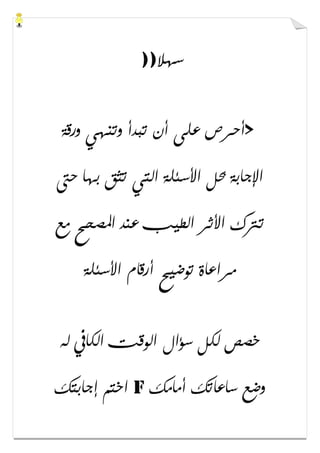 سهلا((
>أحرص على أن تبدأ وتنهي ورقة
الإجابة بحل الأسئلة التي تثق بها حتى
تترك الأثر الطيب عند المصحح مع
مراعاة توضيح أرقام الأسئلة
خصص لكل سؤال الوقت الكافي له
وضع ساعاتك أمامك F اختم إجابتك